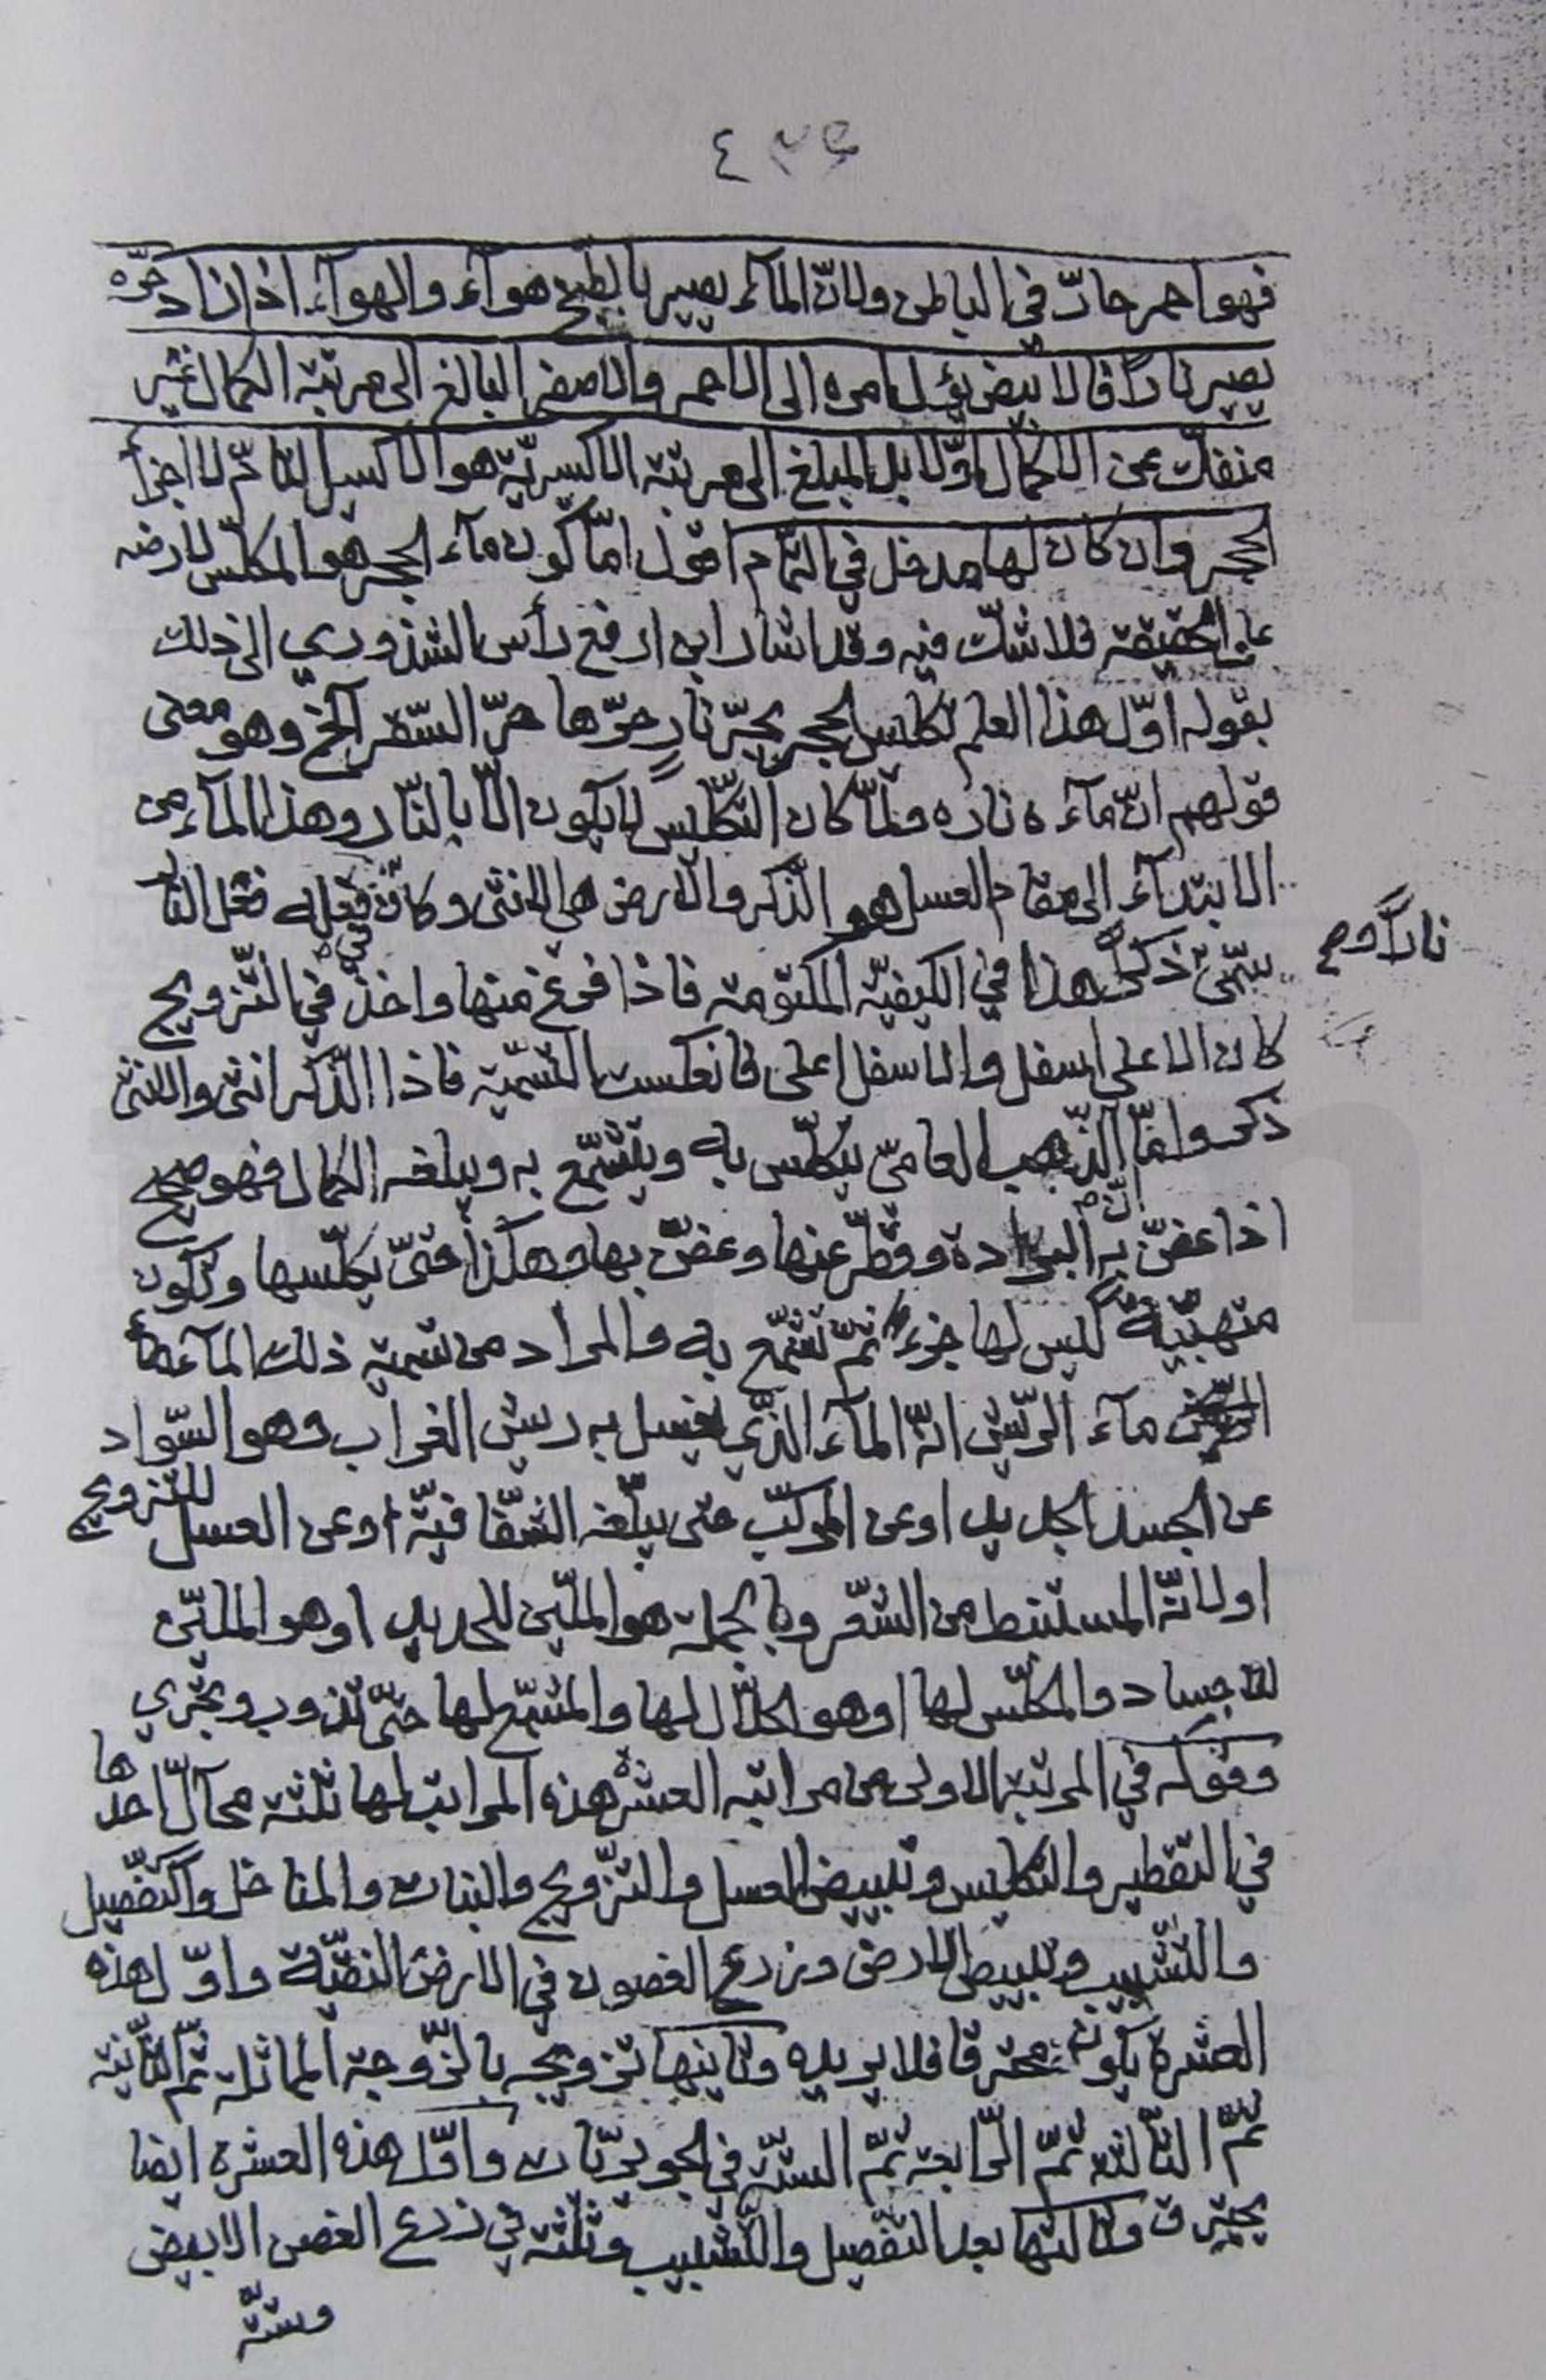 ٤٣٤
فهو احمر حارّ في الباطن ولانّ المآء يصير بالطبخ هوآء والهوآء اذا زاد حرّه
يصير نارًا فالابيض يؤل امره الى الاحمر والاصفر البالغ الى مرتبة الكمال غير
منفكّ عن الاكمال اوّلا بل المبلغ الى مرتبة الاكسريّة هو الاكسير التامّ لا اجزآء
الحجر وان كان لها مدخل في التمام اقول امّا كون مآء الحجر هو المكلّس لارضه
على الحقيقة فلا شكّ فيه وقد اشار ابن ارفع رأس الشذوري الى ذلك
بقوله اوّل هذا العلم تكليس الحجر بحرّ نارٍ حرّها حرّ السّقر آلخ وهو معنى
قولهم انّ مآءه ناره ولمّا كان التّكليس لا يكون الّا بالنّار وهذا المآء من
الابتدآء الى مقام العسل هو الذّكر والارض هي الانثى وكان فعله فعل النار
سمّي ذكرًا هذا في الكيفيّة المكتومة فاذا فرغ منها واخذ في التّزويج
نارًا وصح
كان الاعلى اسفل والاسفل اعلى فانعكست التّسميّة فاذا الذّكر انثى والانثى
ذكر وامّا الذّهب العاميّ يتكلّس به ويتشمّع به ويبلغه الكمال فهو صحيح
اذا عفّن به البرادة وقطّر عنها وعفّن بها وهكذا حتّى يكلّسها وتكون
متهبّية ليس لها جزء ثمّ تشمّع به والمراد من تسمية ذلك المآء
مآء الرّيش انّه المآء الذّي يغسل به ريش الغراب وهو السّواد
عن الجسد الجديد او عن المركّب حتى يبلّغه الشفّافيّة او عن العسل للتّزويج
او لانّه المستنبط من الشعر وبالجملة هو المليّن للحديد او هو المليّن
للاجساد والمكلّس لها او هو الحلّال لها والمشمّع لها حتّى تذوب وتجري
وقوله في المرتبة الاولى من مراتبه العشرة هذه المراتب لها ثلثة محآلّ احدها
في التقطير والتكليس وتبييض العسل والتزّويج والبنات والمناخل والتّفصيل
والتّشبيب وتبييض الارض وزرع الغصون في الارض النقيّة واوّل هذه
العشرة يكون محترقا فلا يريده وثانيها تزويجه بالزّوجة المماثلة ثمّ الثّانية
ثمّ الثّالثة ثمّ الرّابعة ثمّ الستّة في الجويريّات واوّل هذه العشرة ايضا
يحترق وثالثها بعد التفصيل والتّشبيب وثلثة في زرع الغصن الابيض
وستّة